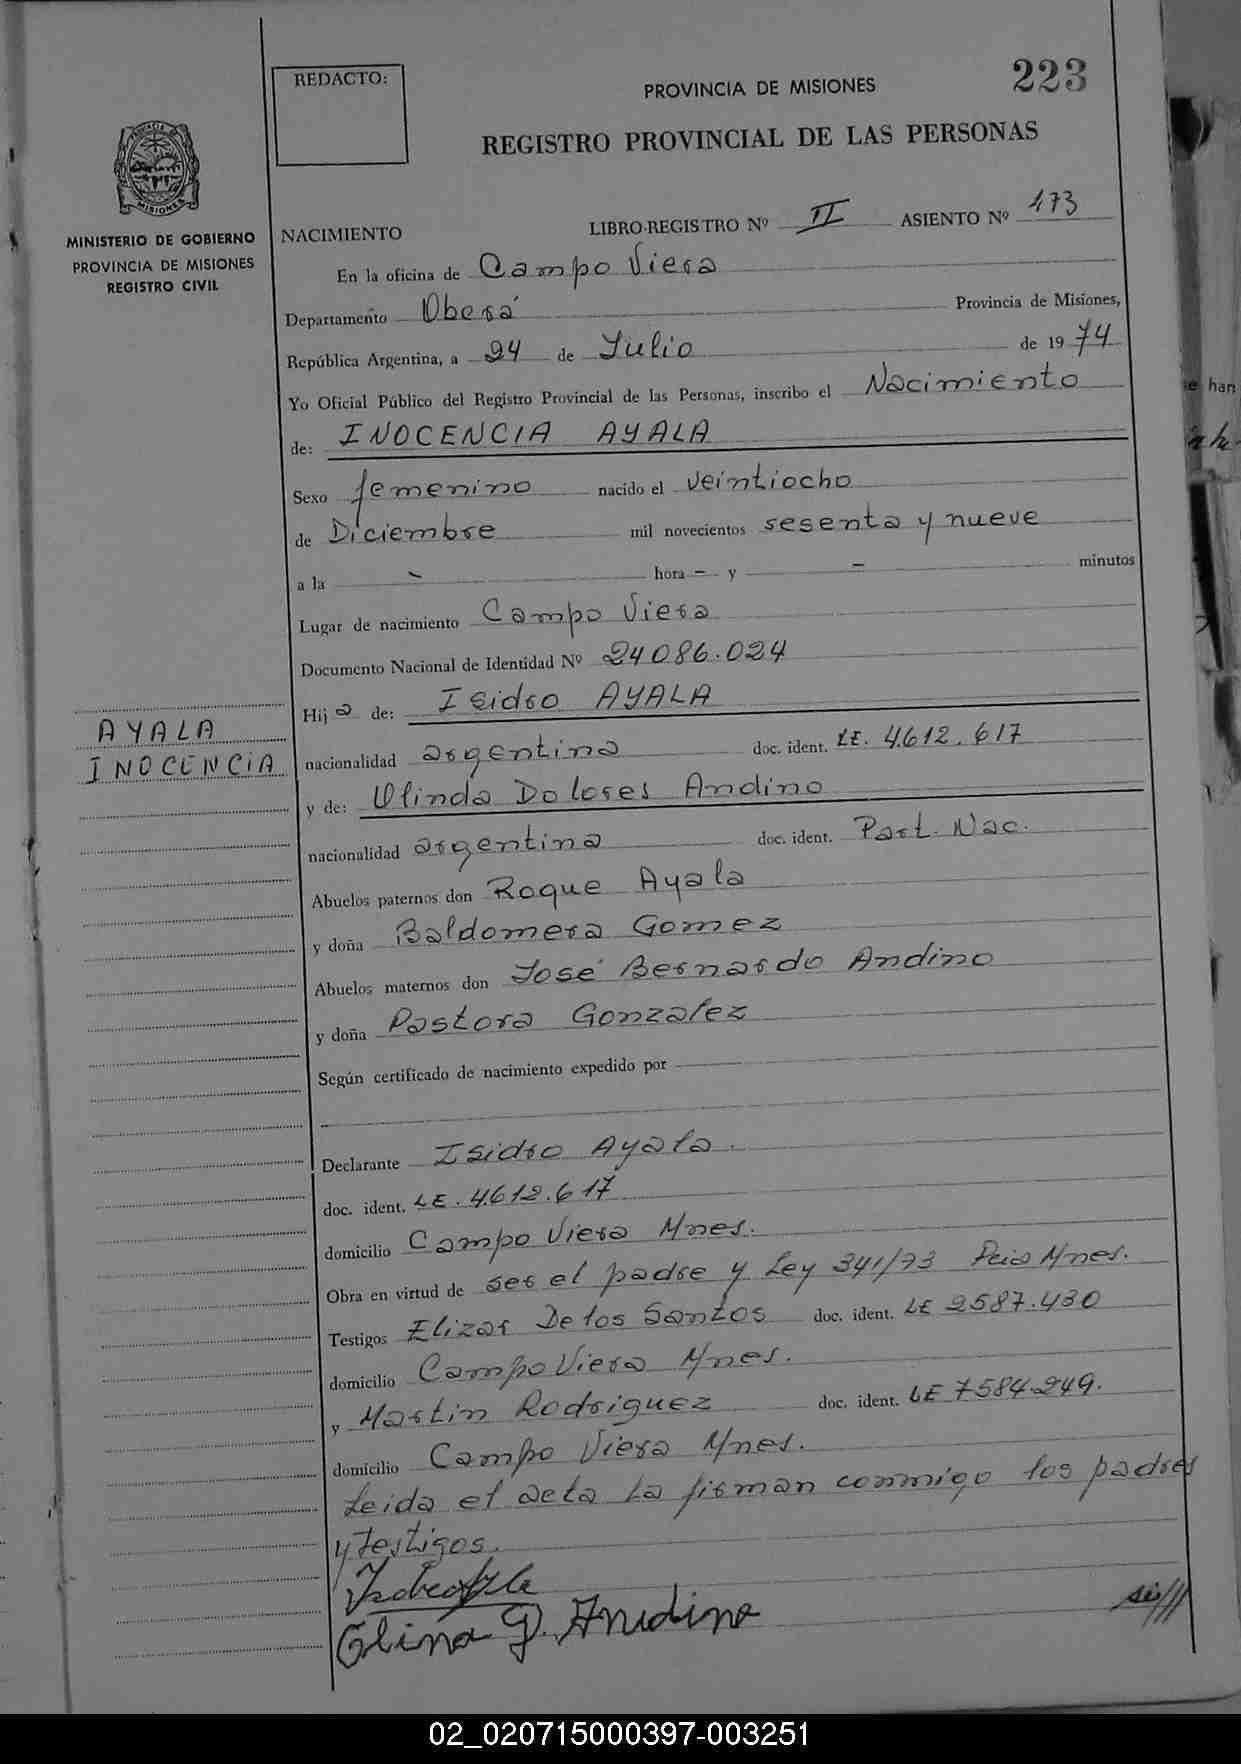 REDACTO:
PROVINCIA DE MISIONES
223
REGISTRO PROVINCIAL DE LAS PERSONAS
MISIONES
MINISTERIO DE GOBIERNO
PROVINCIA DE MISIONES
REGISTRO CIVIL
NACIMIENTO LIBRO-REGISTRO Nº II ASIENTO Nº 173
En la oficina de Campo Viera
Departamento Oberá Provincia de Misiones,
República Argentina, a 24 de Julio de 1974
Yo Oficial Público del Registro Provincial de las Personas, inscribo el Nacimiento
de: INOCENCIA AYALA
Sexo femenino nacido el veintiocho
de Diciembre mil novecientos sesenta y nueve
a la - hora - y - minutos
Lugar de nacimiento Campo Viera
Documento Nacional de Identidad Nº 24086.024
Hija de: Isidro AYALA
AYALA
INOCENCIA
nacionalidad argentina doc. ident. LE. 4.612.617
y de: Olinda Dolores Andino
nacionalidad argentina doc. ident. Part. Nac.
Abuelos paternos don Roque Ayala
y doña Baldomera Gomez
Abuelos maternos don José Bernardo Andino
y doña Pastora Gonzalez
Según certificado de nacimiento expedido por
Declarante Isidro Ayala.
doc. ident. LE. 4.612.617
domicilio Campo Viera Mnes.
Obra en virtud de ser el padre y Ley 341/73 Pcia Mnes.
Testigos Elizar De los Santos doc. ident. LE 2587.430
domicilio Campo Viera Mnes.
y Martin Rodriguez doc. ident. LE 7584.249.
domicilio Campo Viera Mnes.
Leida el acta la firman conmigo los padres
y testigos.
Olina D. Andino
02_020715000397-003251